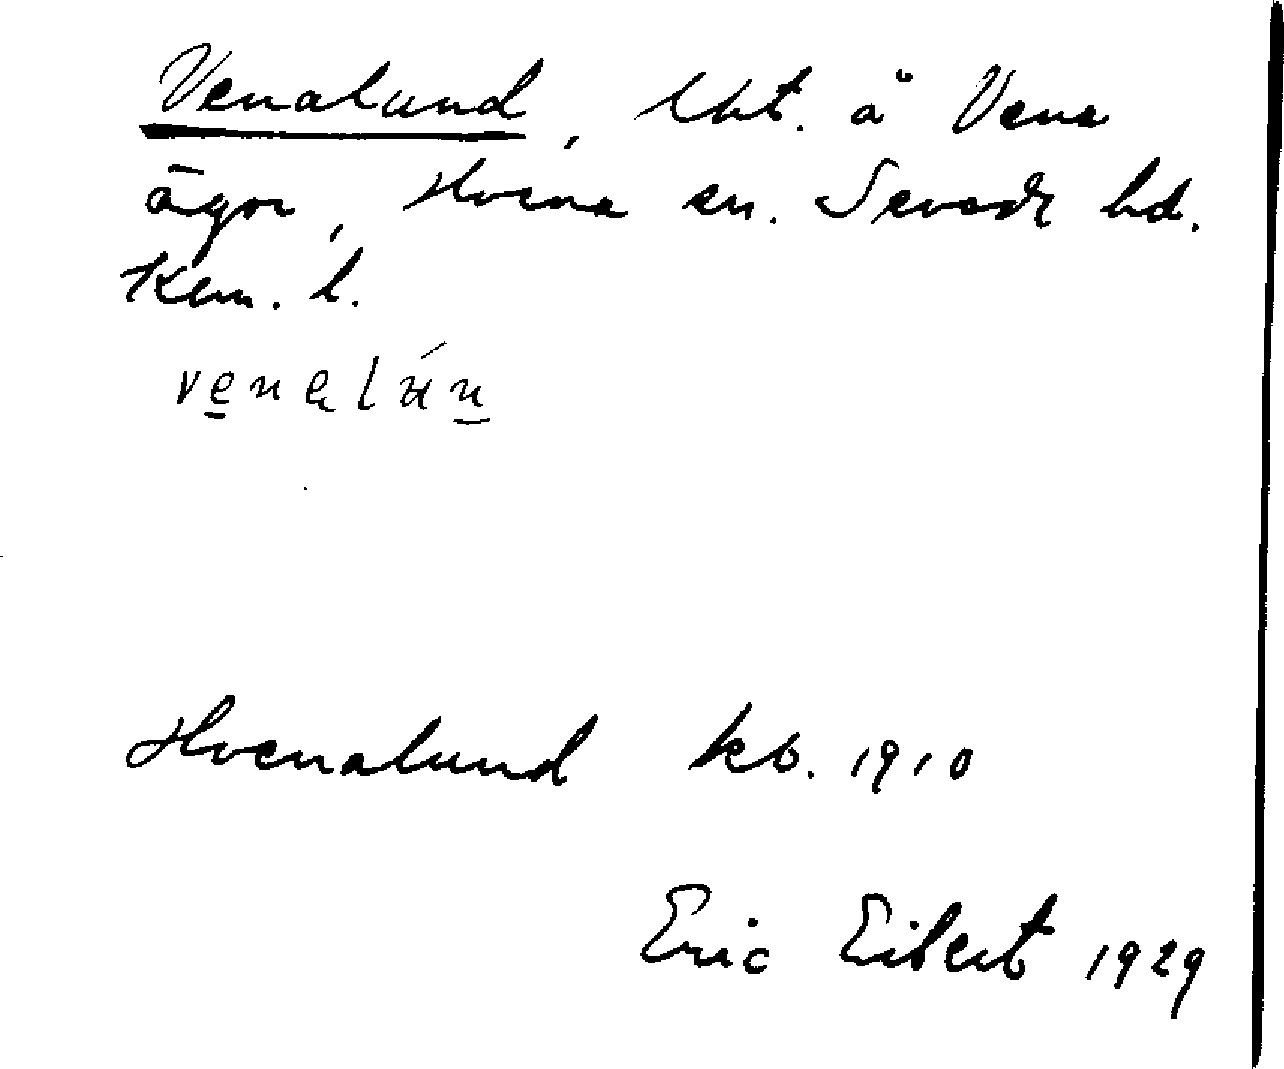 Venalund, lht. å Vena
ägor, Hvena sn. Sevede hd.
Kalm. l.
Hvenalund kb. 1910
Eric Eibert 1929